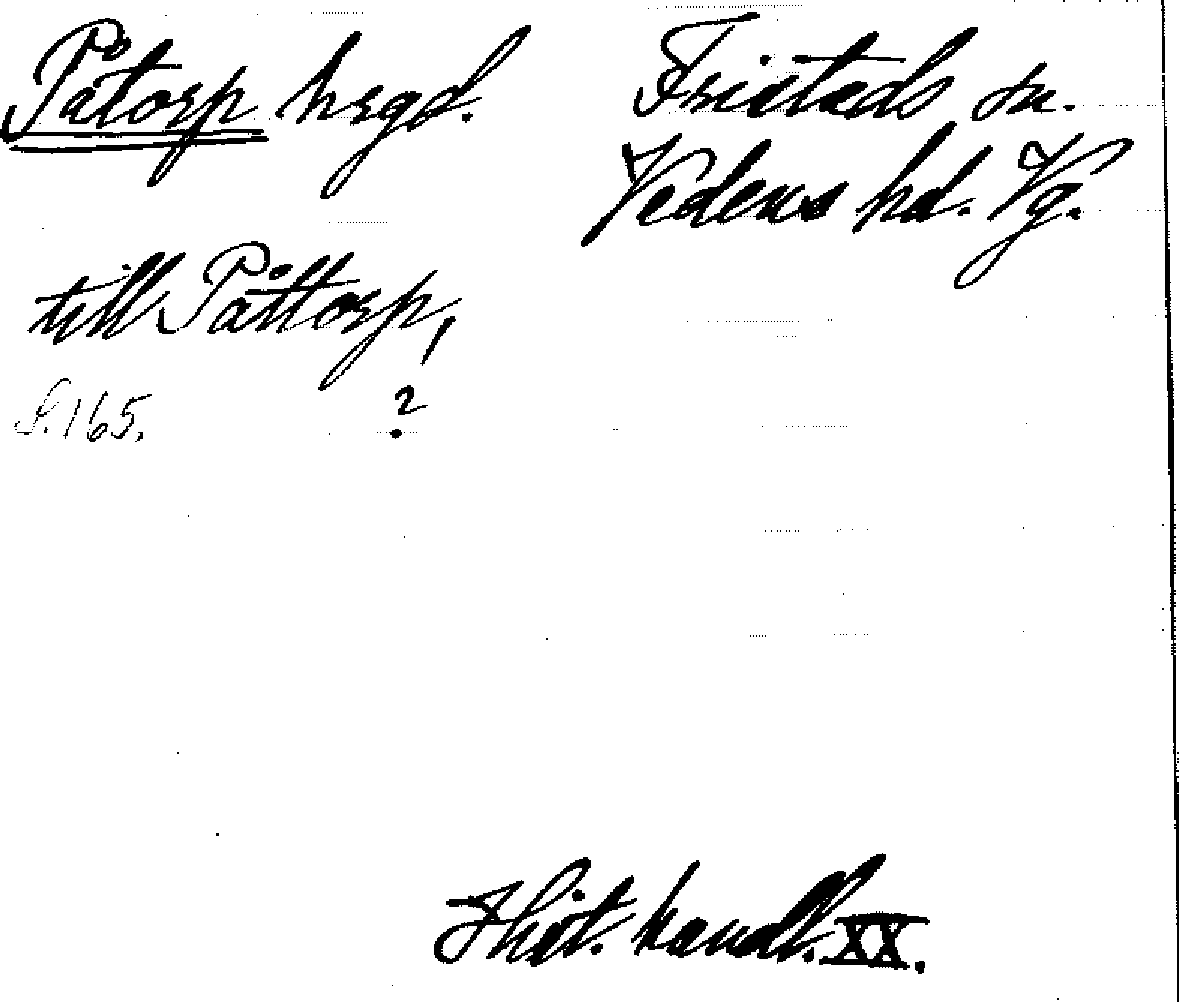 Påtorp hrgd.
Fristads sn.
Vedens hd. Vg.
till Påttorp,
?
S. 165.
Hist. handl. XX.